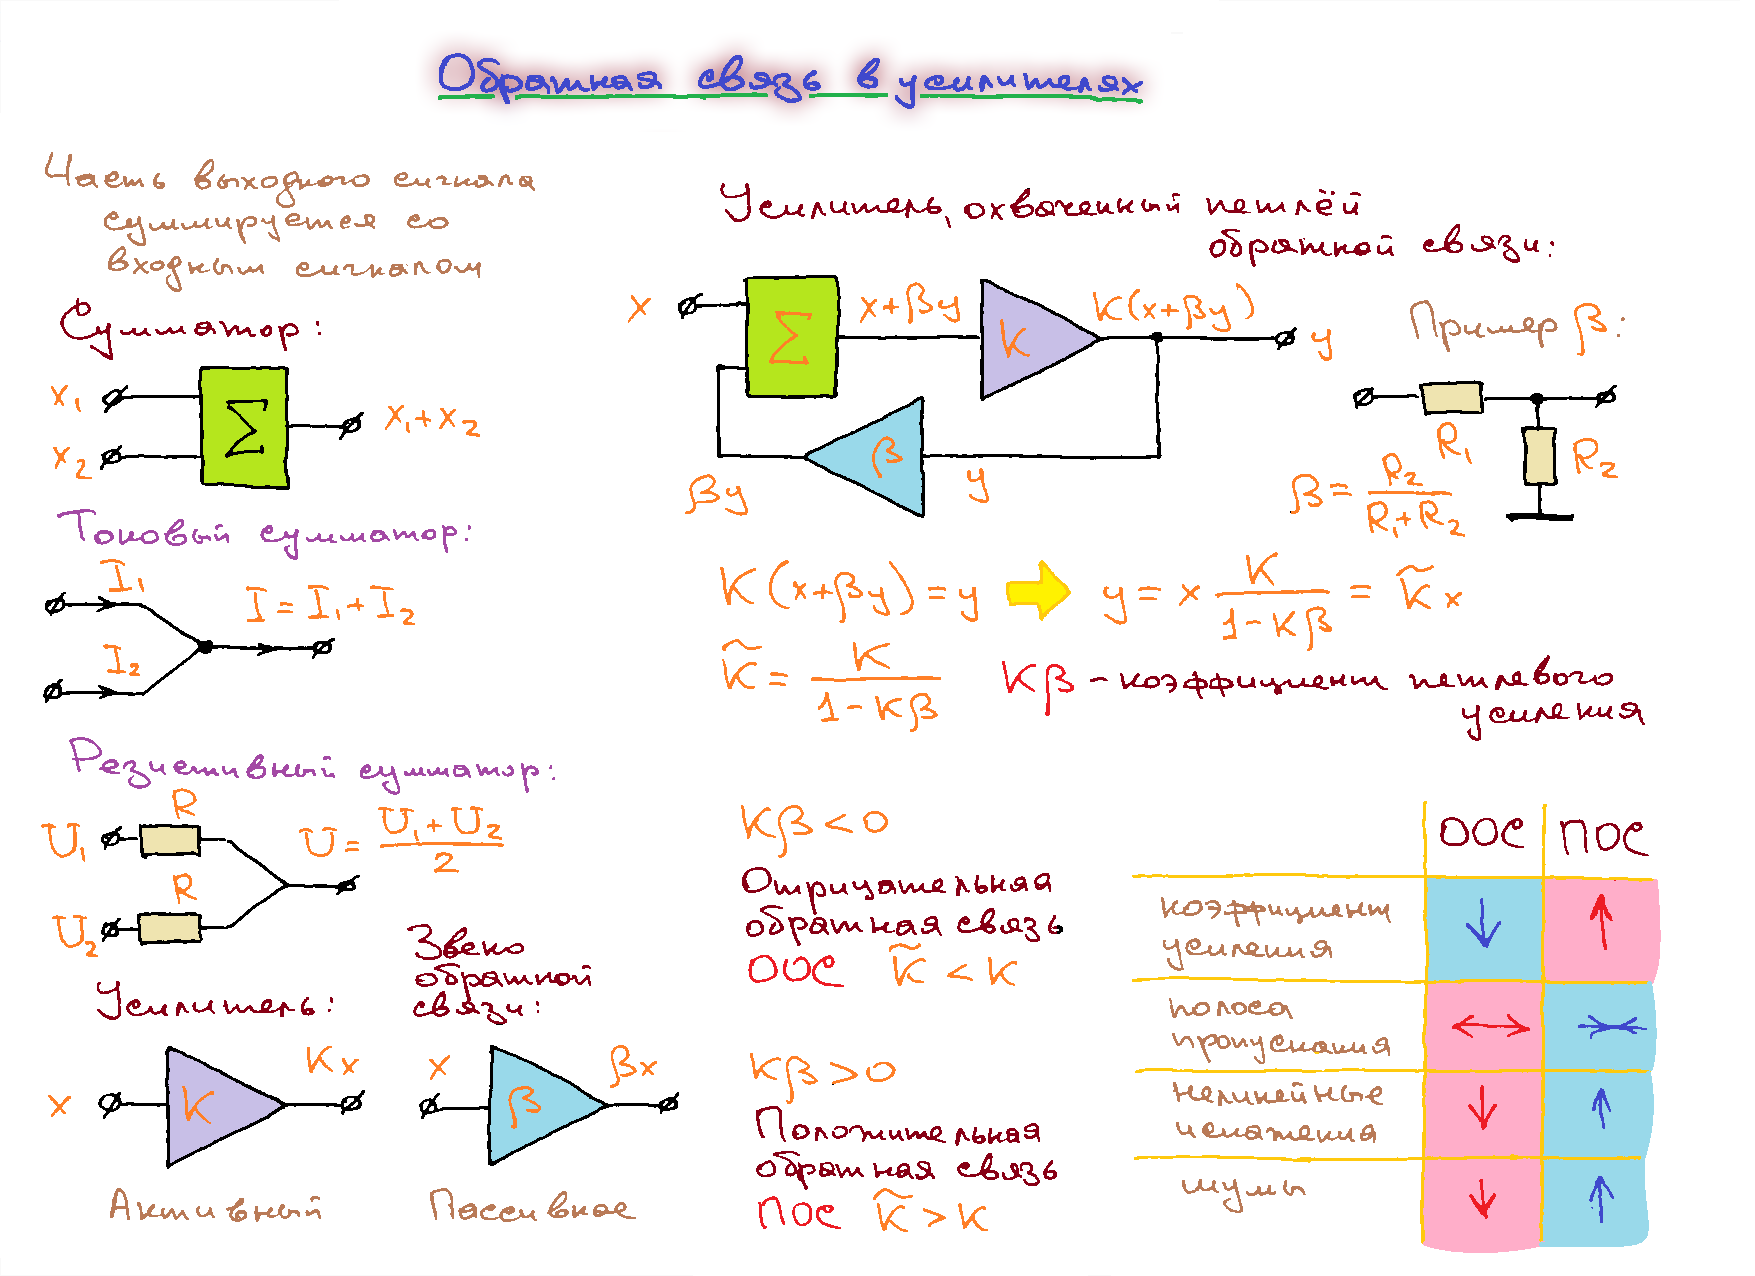 Обратная связь в усилителях
Часть выходного сигнала
суммируется со
входным сигналом
Сумматор:
x₁
x₂
Σ
x₁+x₂
Токовый сумматор:
I₁
I₂
I = I₁+I₂
Резистивный сумматор:
U₁
R
U₂
R
U = (U₁+U₂)/2
Усилитель:
x
K
Kx
Активный
Звено
обратной
связи:
x
β
βx
Пассивное
Усилитель, охваченный петлёй
обратной связи:
x
Σ
x+βy
K
K(x+βy)
y
βy
β
y
Пример β:
R₁
R₂
β = R₂/(R₁+R₂)
K(x+βy) = y
y = x K/(1-Kβ) = K̃x
K̃ = K/(1-Kβ)
Kβ - коэффициент петлевого
усиления
Kβ < 0
Отрицательная
обратная связь
ООС K̃ < K
Kβ > 0
Положительная
обратная связь
ПОС K̃ > K
ООС ПОС
коэффициент
усиления
↓ ↑
полоса
пропускания
нелинейные
искажения
↓ ↑
шумы
↓ ↑